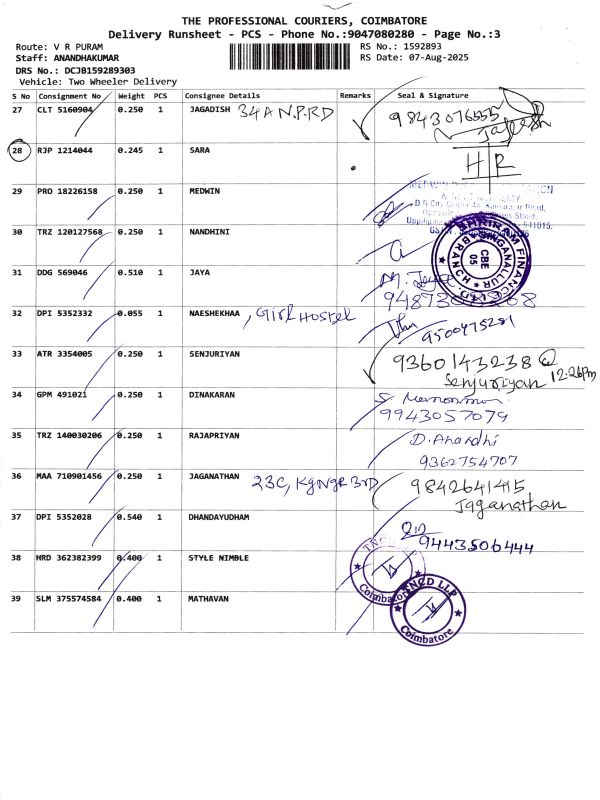 THE PROFESSIONAL COURIERS, COIMBATORE
Delivery Runsheet - PCS - Phone No.:9047080280 - Page No.:3
Route: V R PURAM RS No.: 1592893
Staff: ANANDHAKUMAR RS Date: 07-Aug-2025
DRS No.: DCJB159289303
Vehicle: Two Wheeler Delivery
S No Consignment No Weight PCS Consignee Details Remarks Seal & Signature
27 CLT 5160904 0.250 1 JAGADISH 34A N.P.RD 9843076555
Jagesh
28 RJP 1214044 0.245 1 SARA H R
29 PRO 18226158 0.250 1 MEDWIN
30 TRZ 120127568 0.250 1 NANDHINI
SHRIRAM FINANCE LTD
SINGANALLUR BRANCH
CBE
05
31 DDG 569046 0.510 1 JAYA M. Jaya
32 DPI 5352332 0.055 1 NAESHEKHAA , Girl Hostel
9500475281
33 ATR 3354005 0.250 1 SENJURIYAN 9360143238
Senjuriyan 12:26pm
34 GPM 491021 0.250 1 DINAKARAN
9943057079
35 TRZ 140030206 0.250 1 RAJAPRIYAN D. Anandhi
9362754707
36 MAA 710901456 0.250 1 JAGANATHAN 23C, KgNgR 3rD 9842641415
Jaganathan
37 DPI 5352028 0.540 1 DHANDAYUDHAM
9443506444
38 HRD 362382399 0.400 1 STYLE NIMBLE
Coimbatore
39 SLM 375574584 0.400 1 MATHAVAN
TNCD LLP
Coimbatore